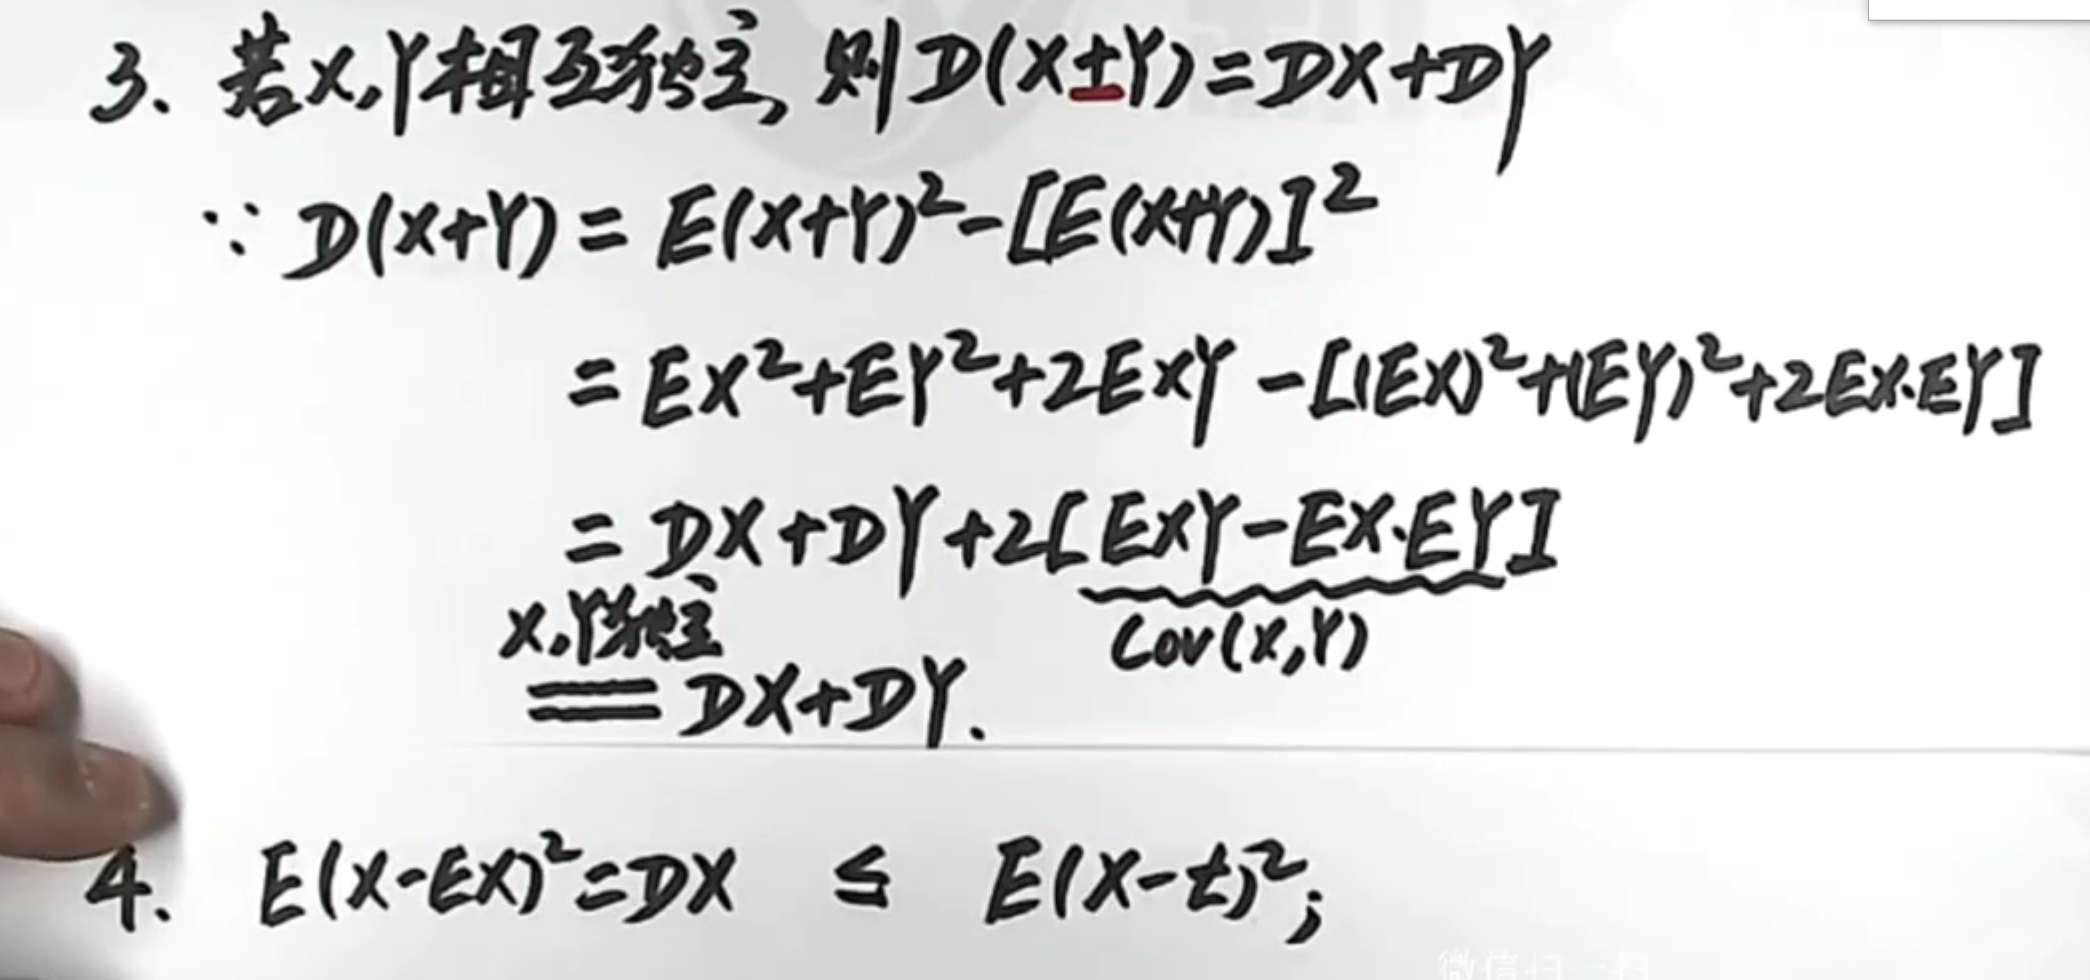 3. 若X,Y相互独立, 则D(X±Y)=DX+DY
∵ D(X+Y) = E(X+Y)²-[E(X+Y)]²
= EX²+EY²+2EXY -[(EX)²+(EY)²+2EX·EY]
= DX+DY+2[EXY-EX·EY]
X,Y独立
Cov(X,Y)
= DX+DY.
4. E(X-EX)²=DX ≤ E(X-t)²;
微信扫一扫